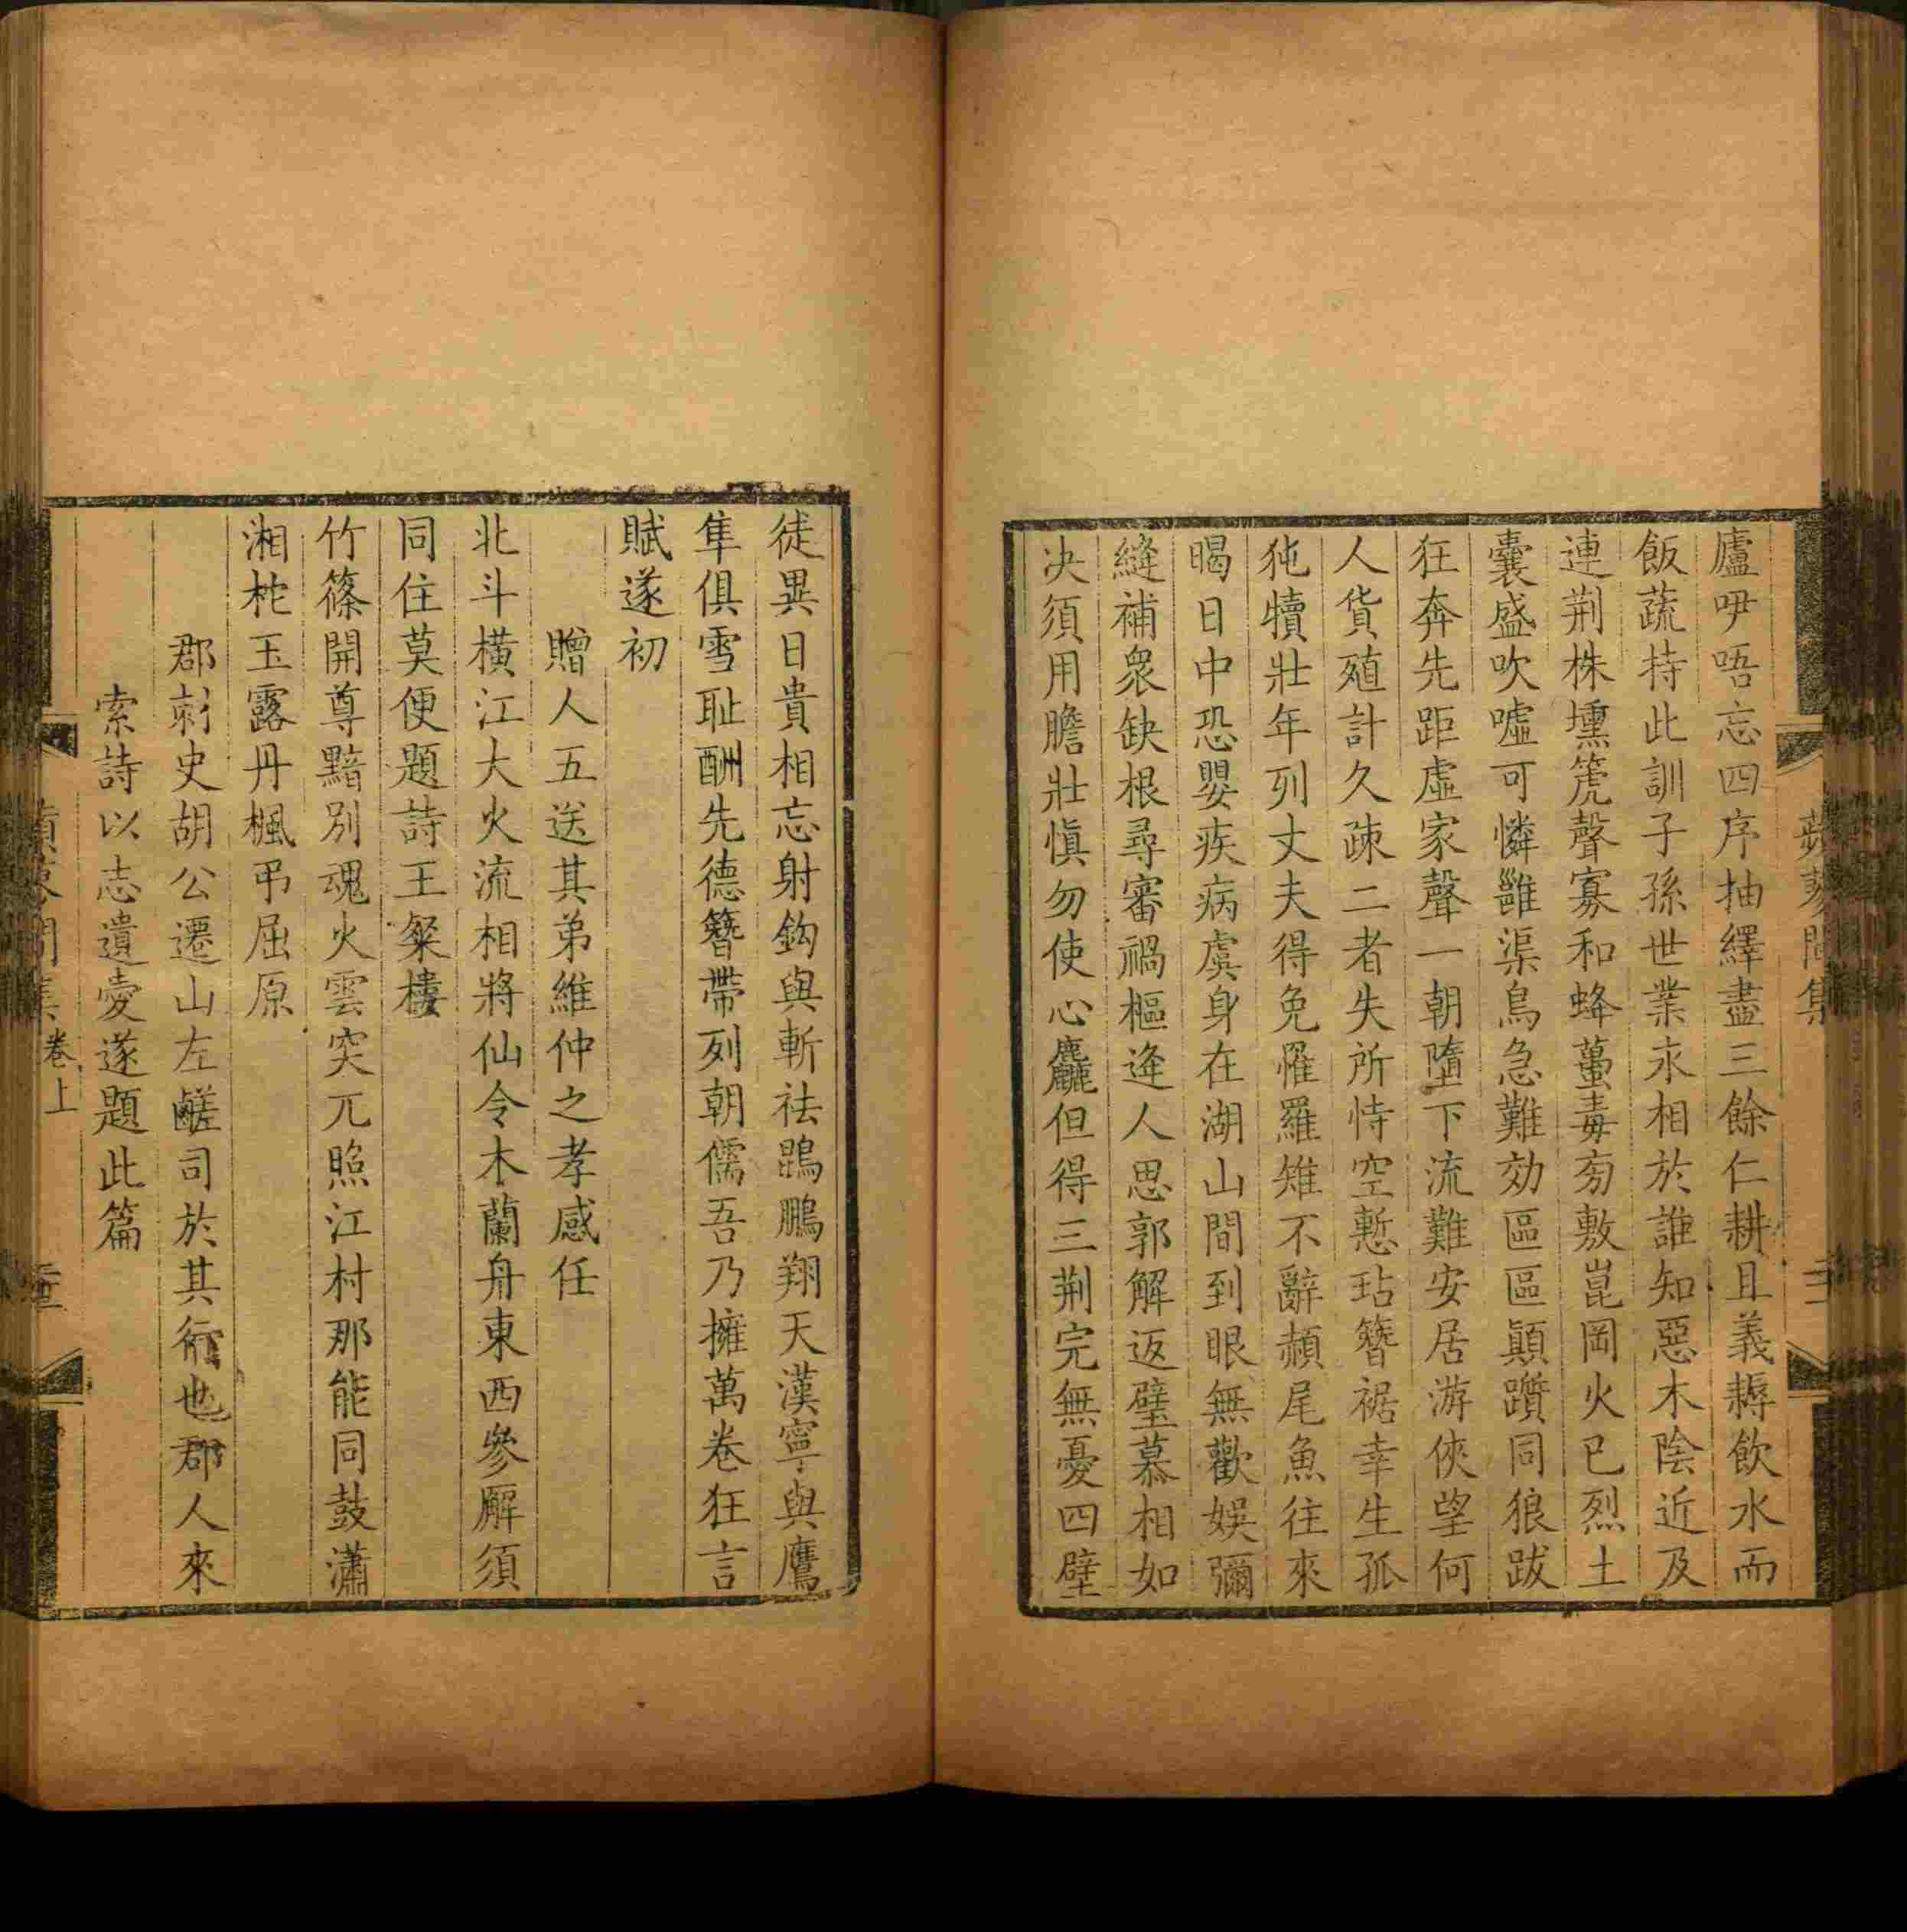 廬咿唔忘四序抽繹盡三餘仁耕且義耨飲水而
飯蔬持此訓子孫世業永相於誰知惡木陰近及
連荆株壎篪聲寡和蜂蠆毒旁敷崑岡火已烈土
囊盛吹嘘可憐雝渠鳥急難効區區顛躓同狼跋
狂奔先距虛家聲一朝墮下流難安居游俠望何
人貨殖計久疎二者失所恃空慙玷簪裾幸生孤
㹠犢壯年列丈夫得免罹羅雉不辭赬尾魚往來
暍日中恐嬰疾病虞身在湖山間到眼無歡娛彌
縫補衆缺根尋審禍樞逢人思郭解返璧慕相如
決須用膽壯愼勿使心麤但得三荆完無憂四壁
徒異日貴相忘射鈎與斬袪鵾鵬翔天漢寧與鷹
隼俱雪耻酬先德簪帶列朝儒吾乃擁萬卷狂言
賦遂初
贈人五送其弟維仲之孝感任
北斗横江大火流相將仙令木蘭舟東西參廨須
同住莫便題詩王粲樓
竹篠開尊黯别魂火雲突兀照江村那能同鼓瀟
湘柁玉露丹楓弔屈原
郡刺史胡公遷山左鹺司於其行也郡人來
索詩以志遺愛遂題此篇
卷上